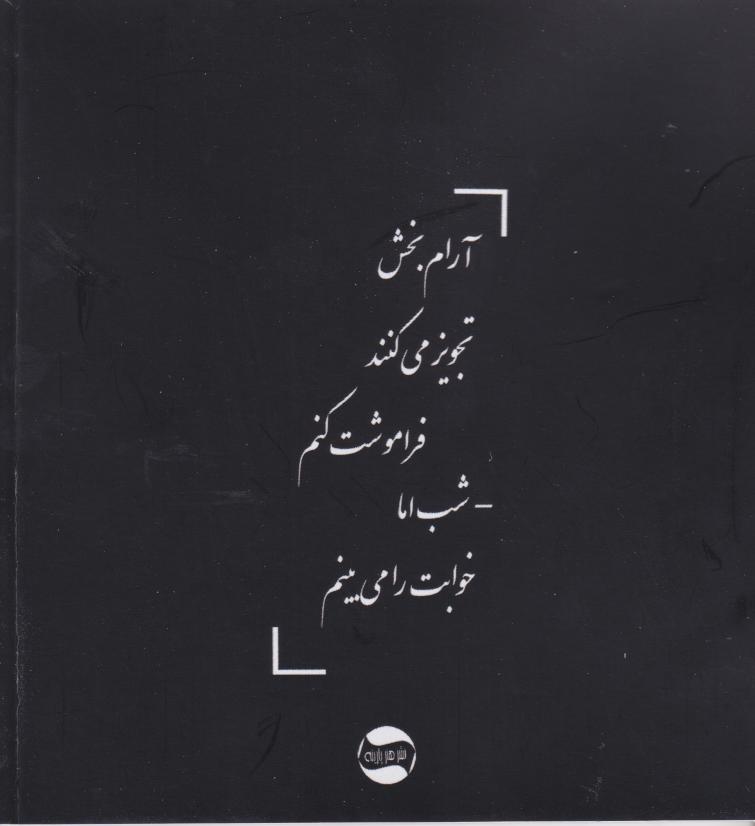 آرام بخش
تجویز می کنند
فراموشت کنم
– شب اما
خوابت را می بینم
نشر هنر پارینه